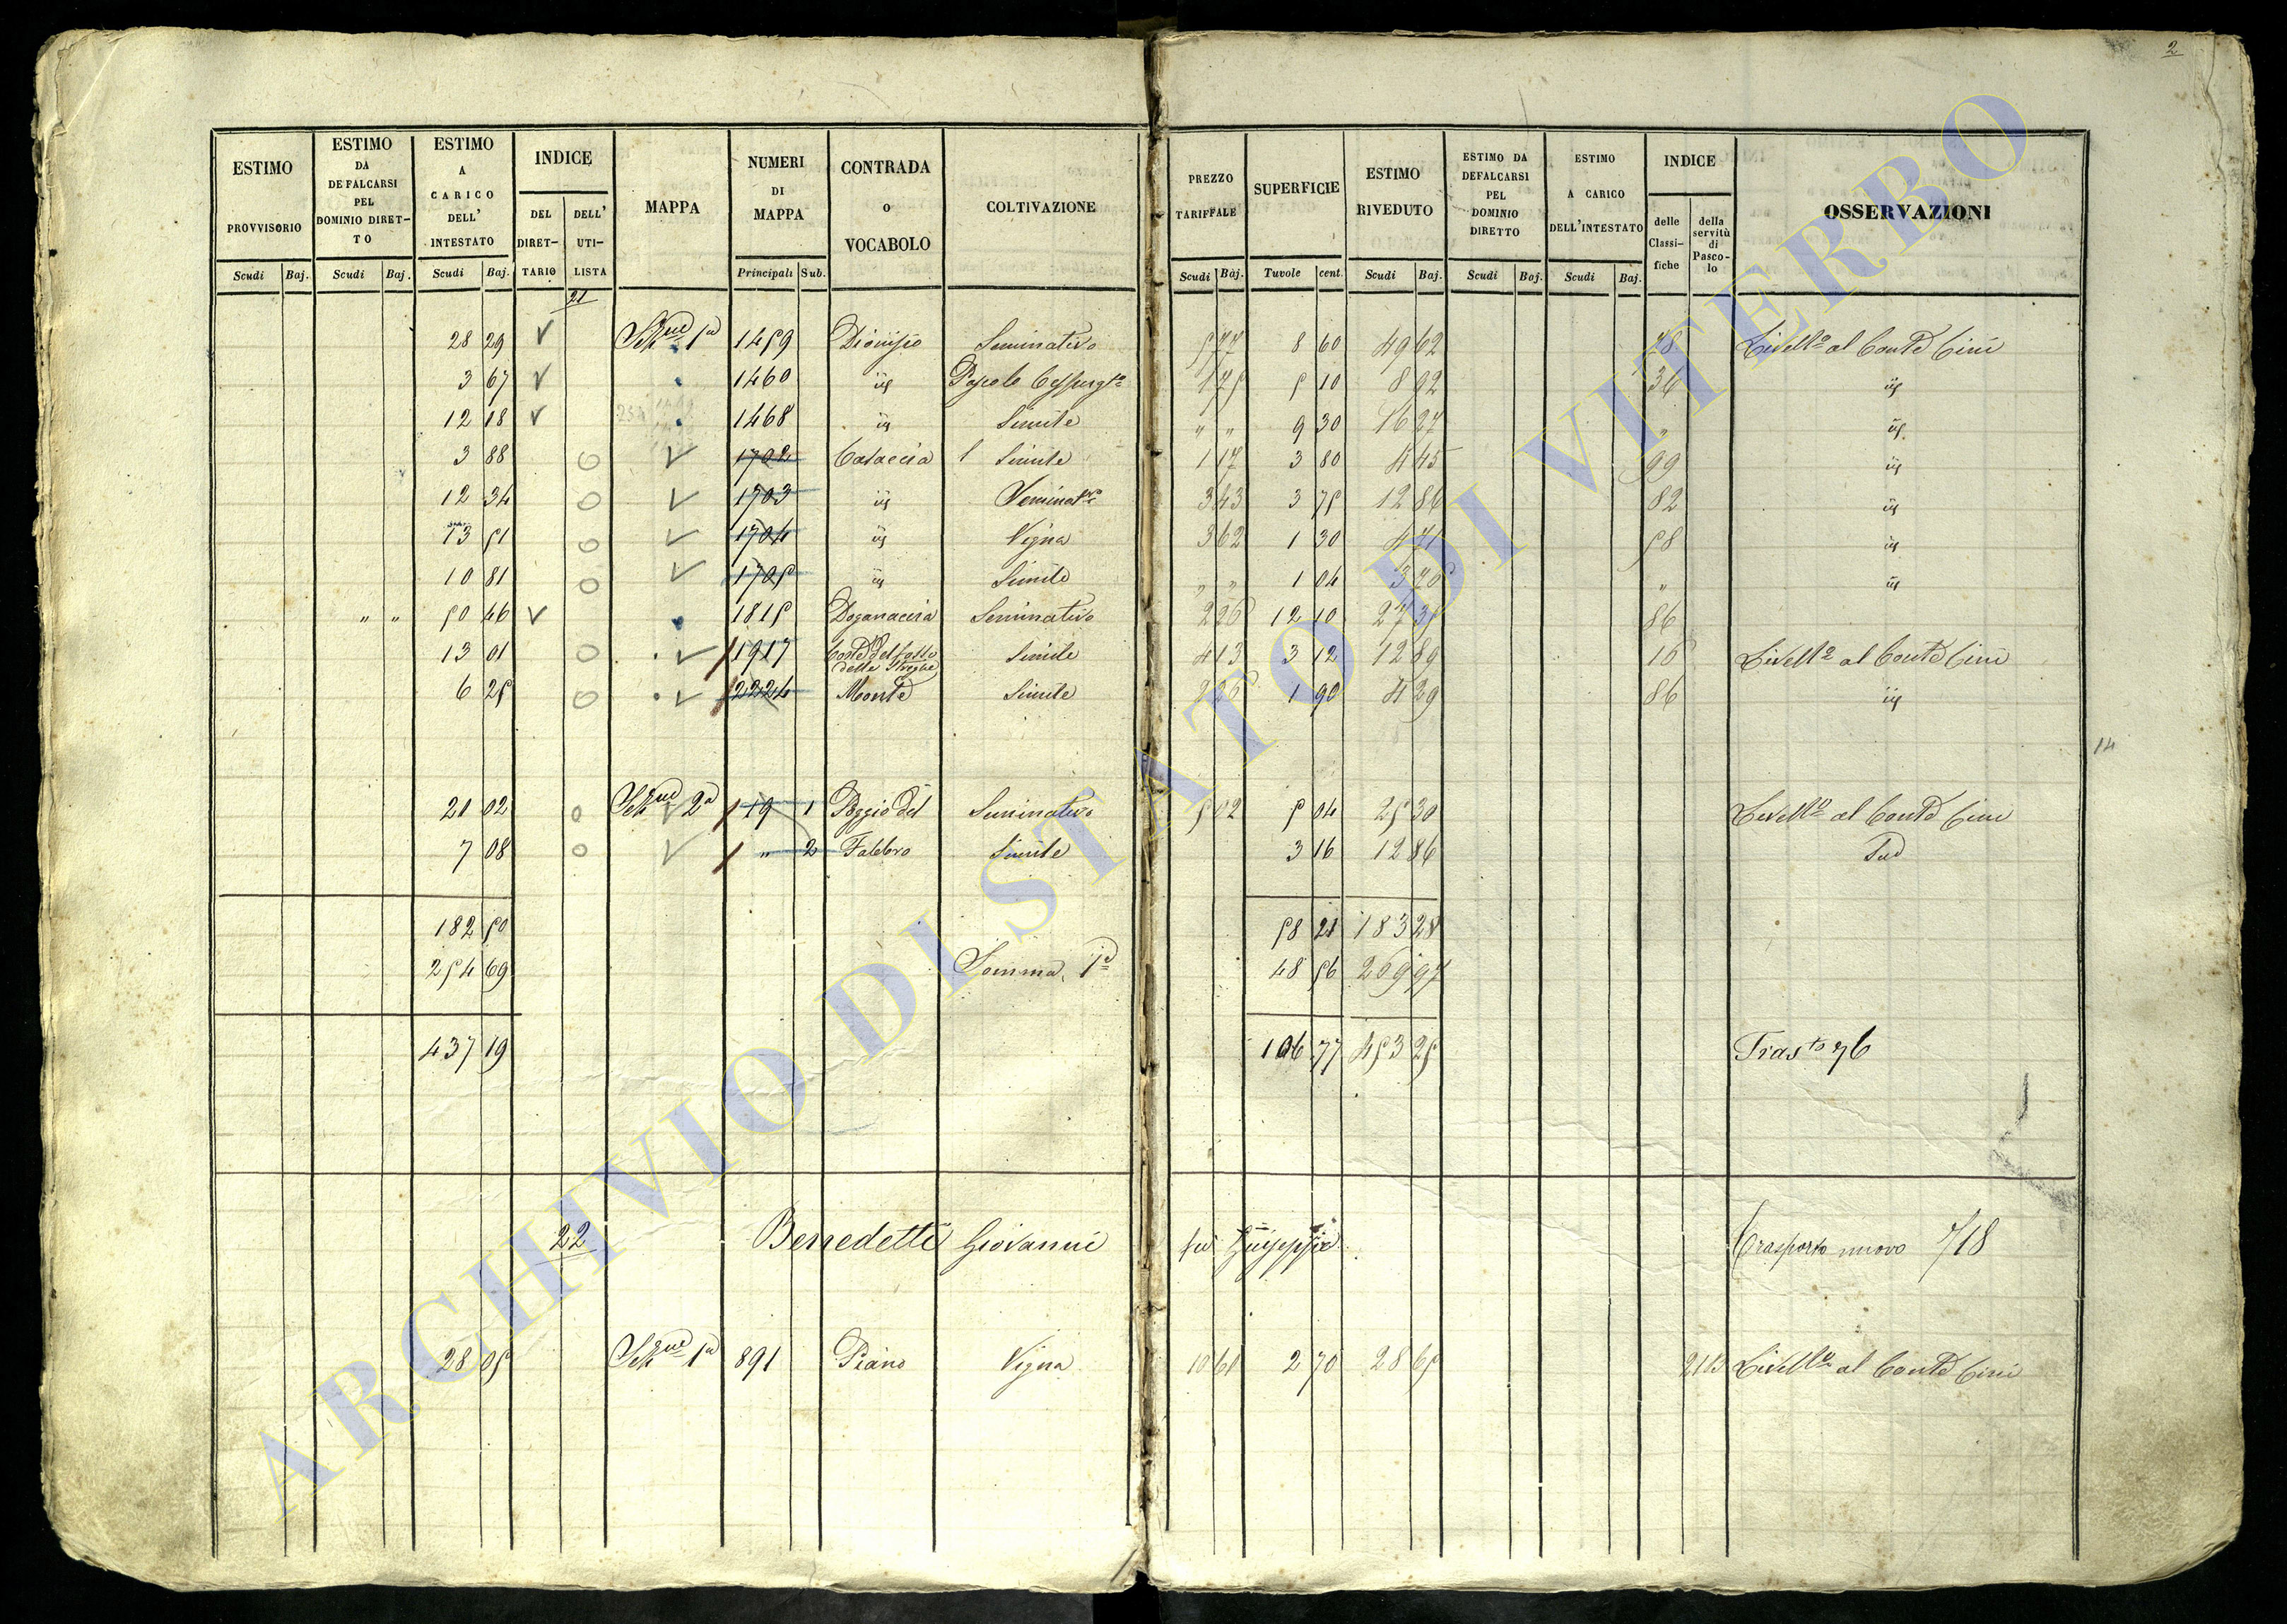 2
ESTIMO PROVVISORIO | ESTIMO DA DEFALCARSI PEL DOMINIO DIRET-TO | ESTIMO A CARICO DELL' INTESTATO | INDICE DEL DIRET-TARIO | DELL' UTI-LISTA | MAPPA | NUMERI DI MAPPA | CONTRADA o VOCABOLO | COLTIVAZIONE | PREZZO TARIFFALE | SUPERFICIE | ESTIMO RIVEDUTO | ESTIMO DA DEFALCARSI PEL DOMINIO DIRETTO | ESTIMO A CARICO DELL'INTESTATO | INDICE delle Classi-fiche | della servitù di Pasco-lo | OSSERVAZIONI
Scudi Baj. Scudi Baj. Scudi Baj. Principali Sub. Scudi Baj. Tavole cent. Scudi Baj. Scudi Baj. Scudi Baj.
21
28 29 V 1a 1459 Dionisio Seminativo 5 77 8 60 49 62 78 Livello al Conte Cini
3 67 V 1460 iis Pascolo 1 75 5 10 8 92 36 iis
12 18 V 1468 iis Simile " " 9 30 16 27 " iis
3 88 O V 1702 Casaccia Simile 1 17 3 80 4 45 99 iis
12 34 O V 1703 iis Seminatvo 3 43 3 75 12 86 82 iis
13 51 O V 1704 iis Vigna 3 62 1 30 4 71 58 iis
10 81 O V 1705 iis Simile " " 1 04 3 76 " iis
" " 50 46 V 1815 Doganaccia Seminativo 2 26 12 10 27 35 86
13 01 O V 1917 Coste del fosso delle Streghe Simile 4 13 3 12 12 89 16 Livello al Conte Cini
6 25 O V 2224 Monte Simile 2 26 1 90 4 29 86 iis
14
21 02 O V 2a 19 1 Poggio del Seminativo 5 02 5 04 25 30 Livello al Conte Cini
7 08 O V " 2 Fabbro Simile 3 16 12 86
182 50 58 21 183 28
254 69 Somma 1a 48 56 269 97
437 19 106 77 453 25 Trasto 76
22 Benedetti Giovanni fu Giuseppe Trasporto nuovo 718
28 05 1a 891 Piano Vigna 10 61 2 70 28 65 Livello al Conte Cini
ARCHIVIO DI STATO DI VITERBO